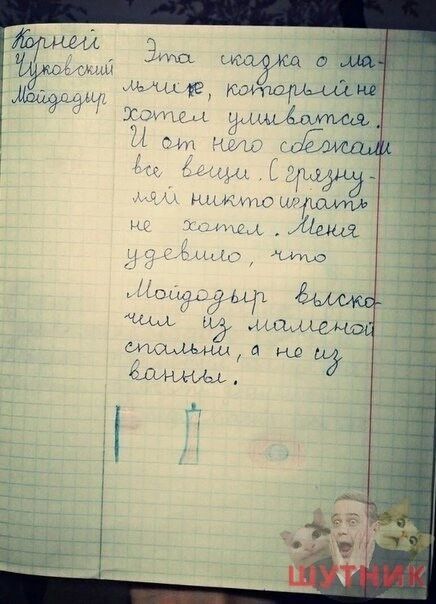 Корней
Чуковский
Мойдодыр
Эта скадка о ма-
льчике, который не
хотел умыватся.
И от него сбежали
все вещи. С грязну-
ляй никто играть
не хотел. Меня
удевило, что
Мойдодыр выско-
чил из маменой
спальни, а не из
ванны.
ШУТНИК